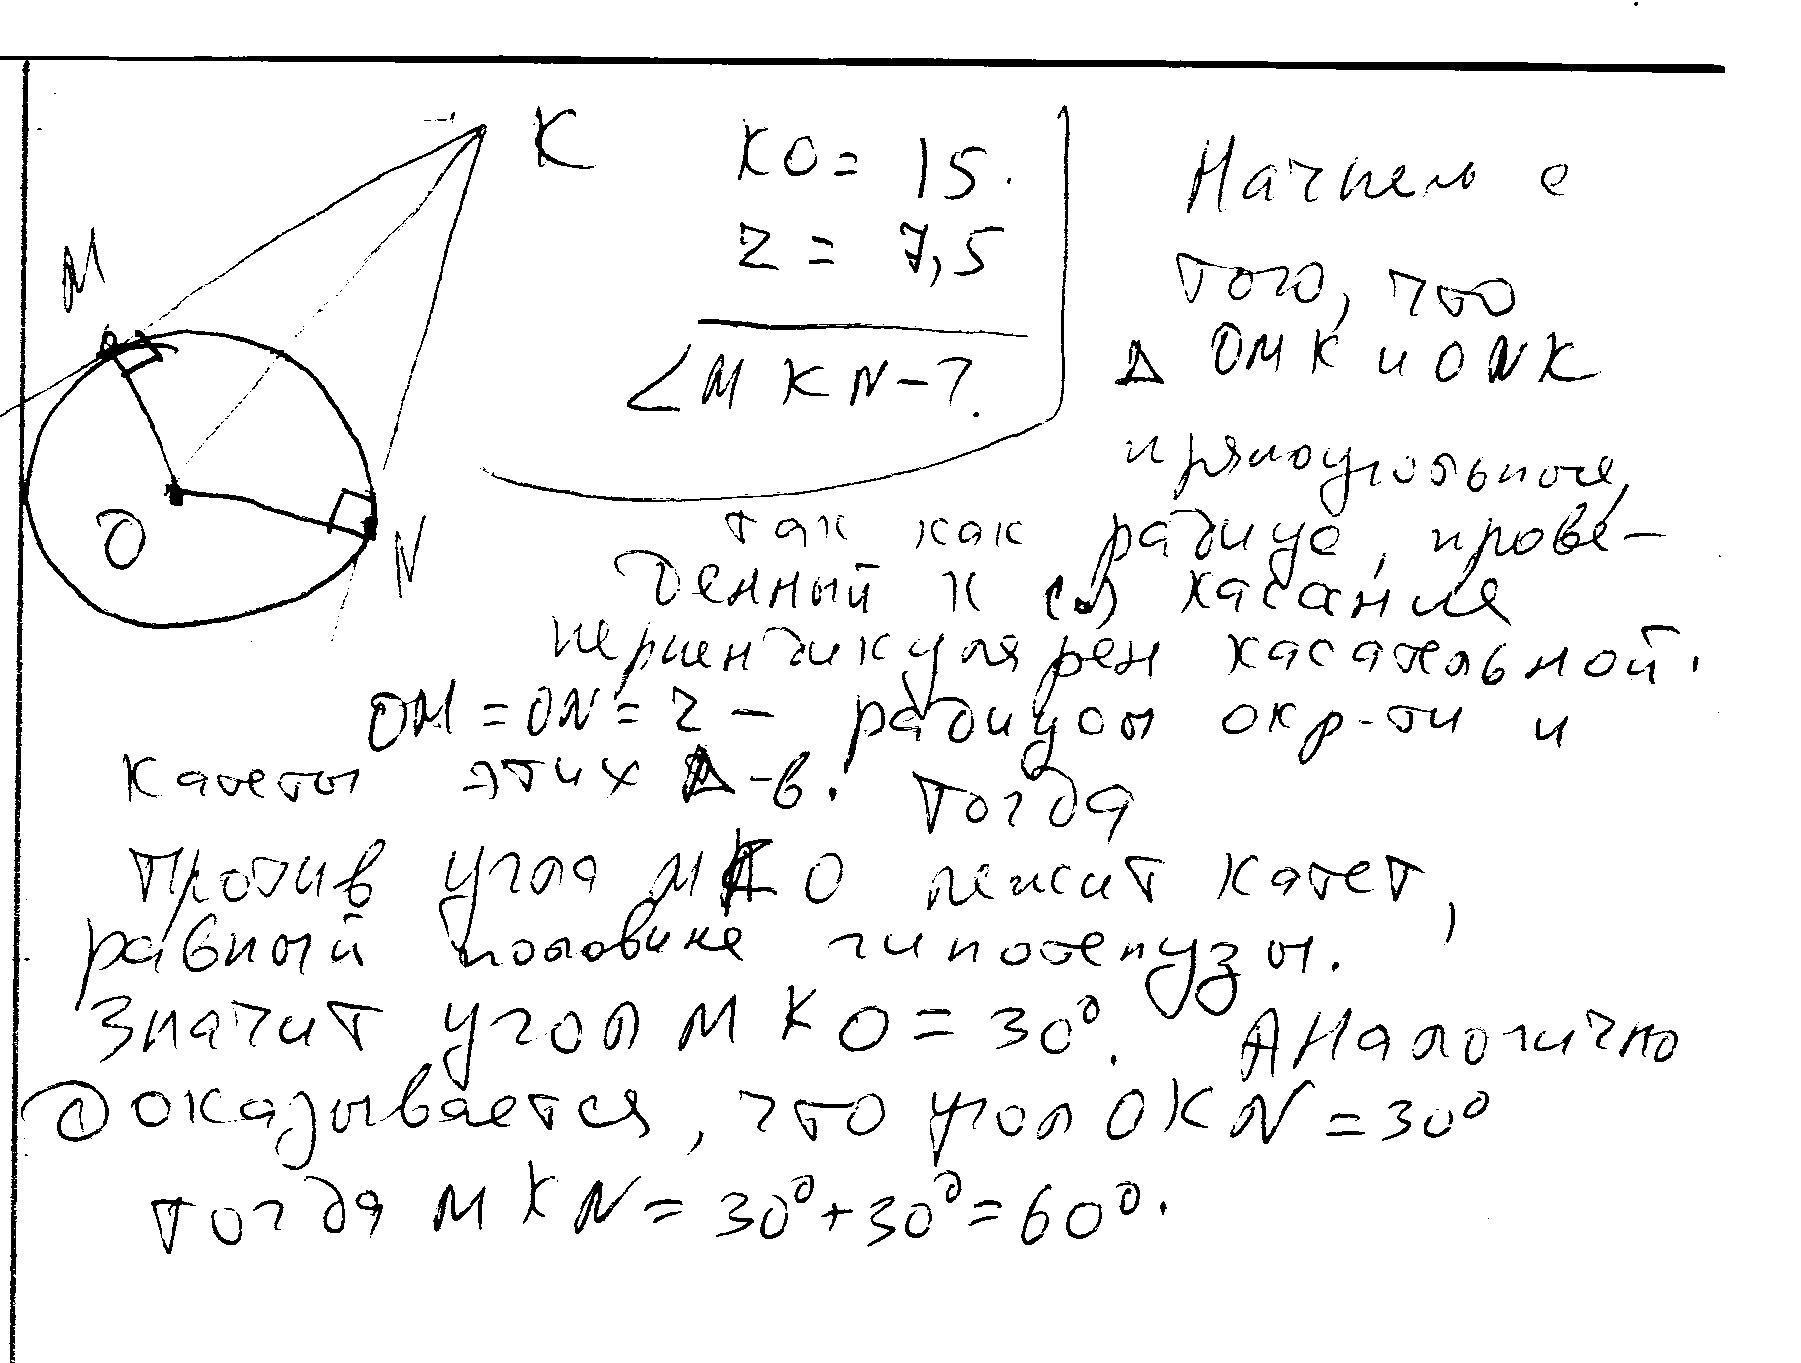 K
M
O
N
KO = 15.
r = 7,5
∠MKN - ?
Начнем с
того, что
Δ OMK и ONK
прямоугольные,
так как радиус, прове-
денный к касания
перпендикулярен касательной.
OM = ON = r - радиусы окр-ти и
катеты этих Δ-в. Тогда
Против угла MKO лежит катет,
равный половине гипотенузы.
Значит угол MKO = 30°. Аналогично
Доказывается, что угол OKN = 30°
тогда MKN = 30° + 30° = 60°.